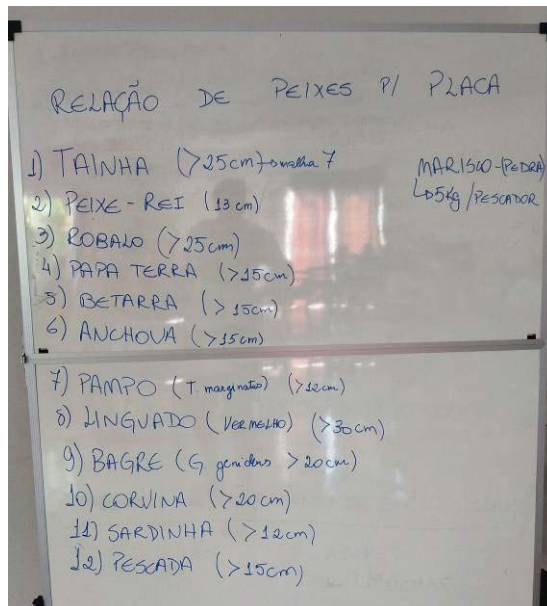 RELAÇÃO DE PEIXES P/ PLACA
1) TAINHA (>25cm)→malha 7
2) PEIXE-REI (13 cm)
3) ROBALO (>25cm)
4) PAPA TERRA (>15cm)
5) BETARRA (>15cm)
6) ANCHOVA (>15cm)
MARISCO-(PEDRA)
↳5kg/PESCADOR
7) PAMPO (T. marginatus) (>12cm)
8) LINGUADO (VERMELHO) (>30cm)
9) BAGRE (G. genidens >20cm)
10) CORVINA (>20cm)
11) SARDINHA (>12cm)
12) PESCADA (>15cm)